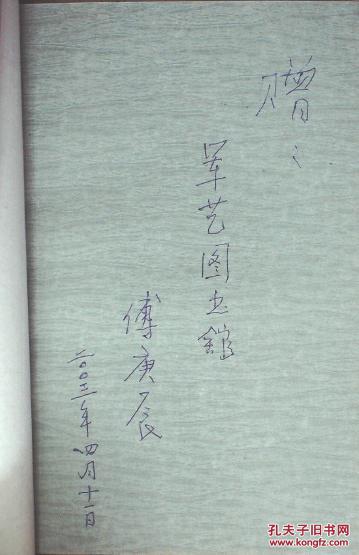 赠：
军艺图书館
傅庚辰
二〇〇三年四月十一日
孔夫子旧书网
www.kongfz.com